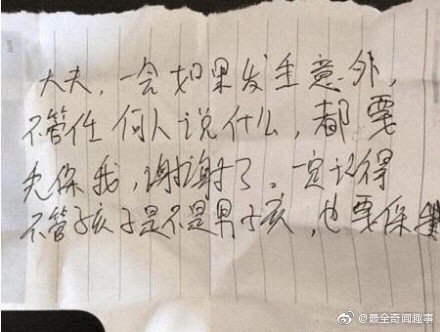 大夫,一会如果发生意外,
不管任何人说什么,都要
先保我,谢谢了。一定记得
不管孩子是不是男孩,也要保
@最全奇闻趣事